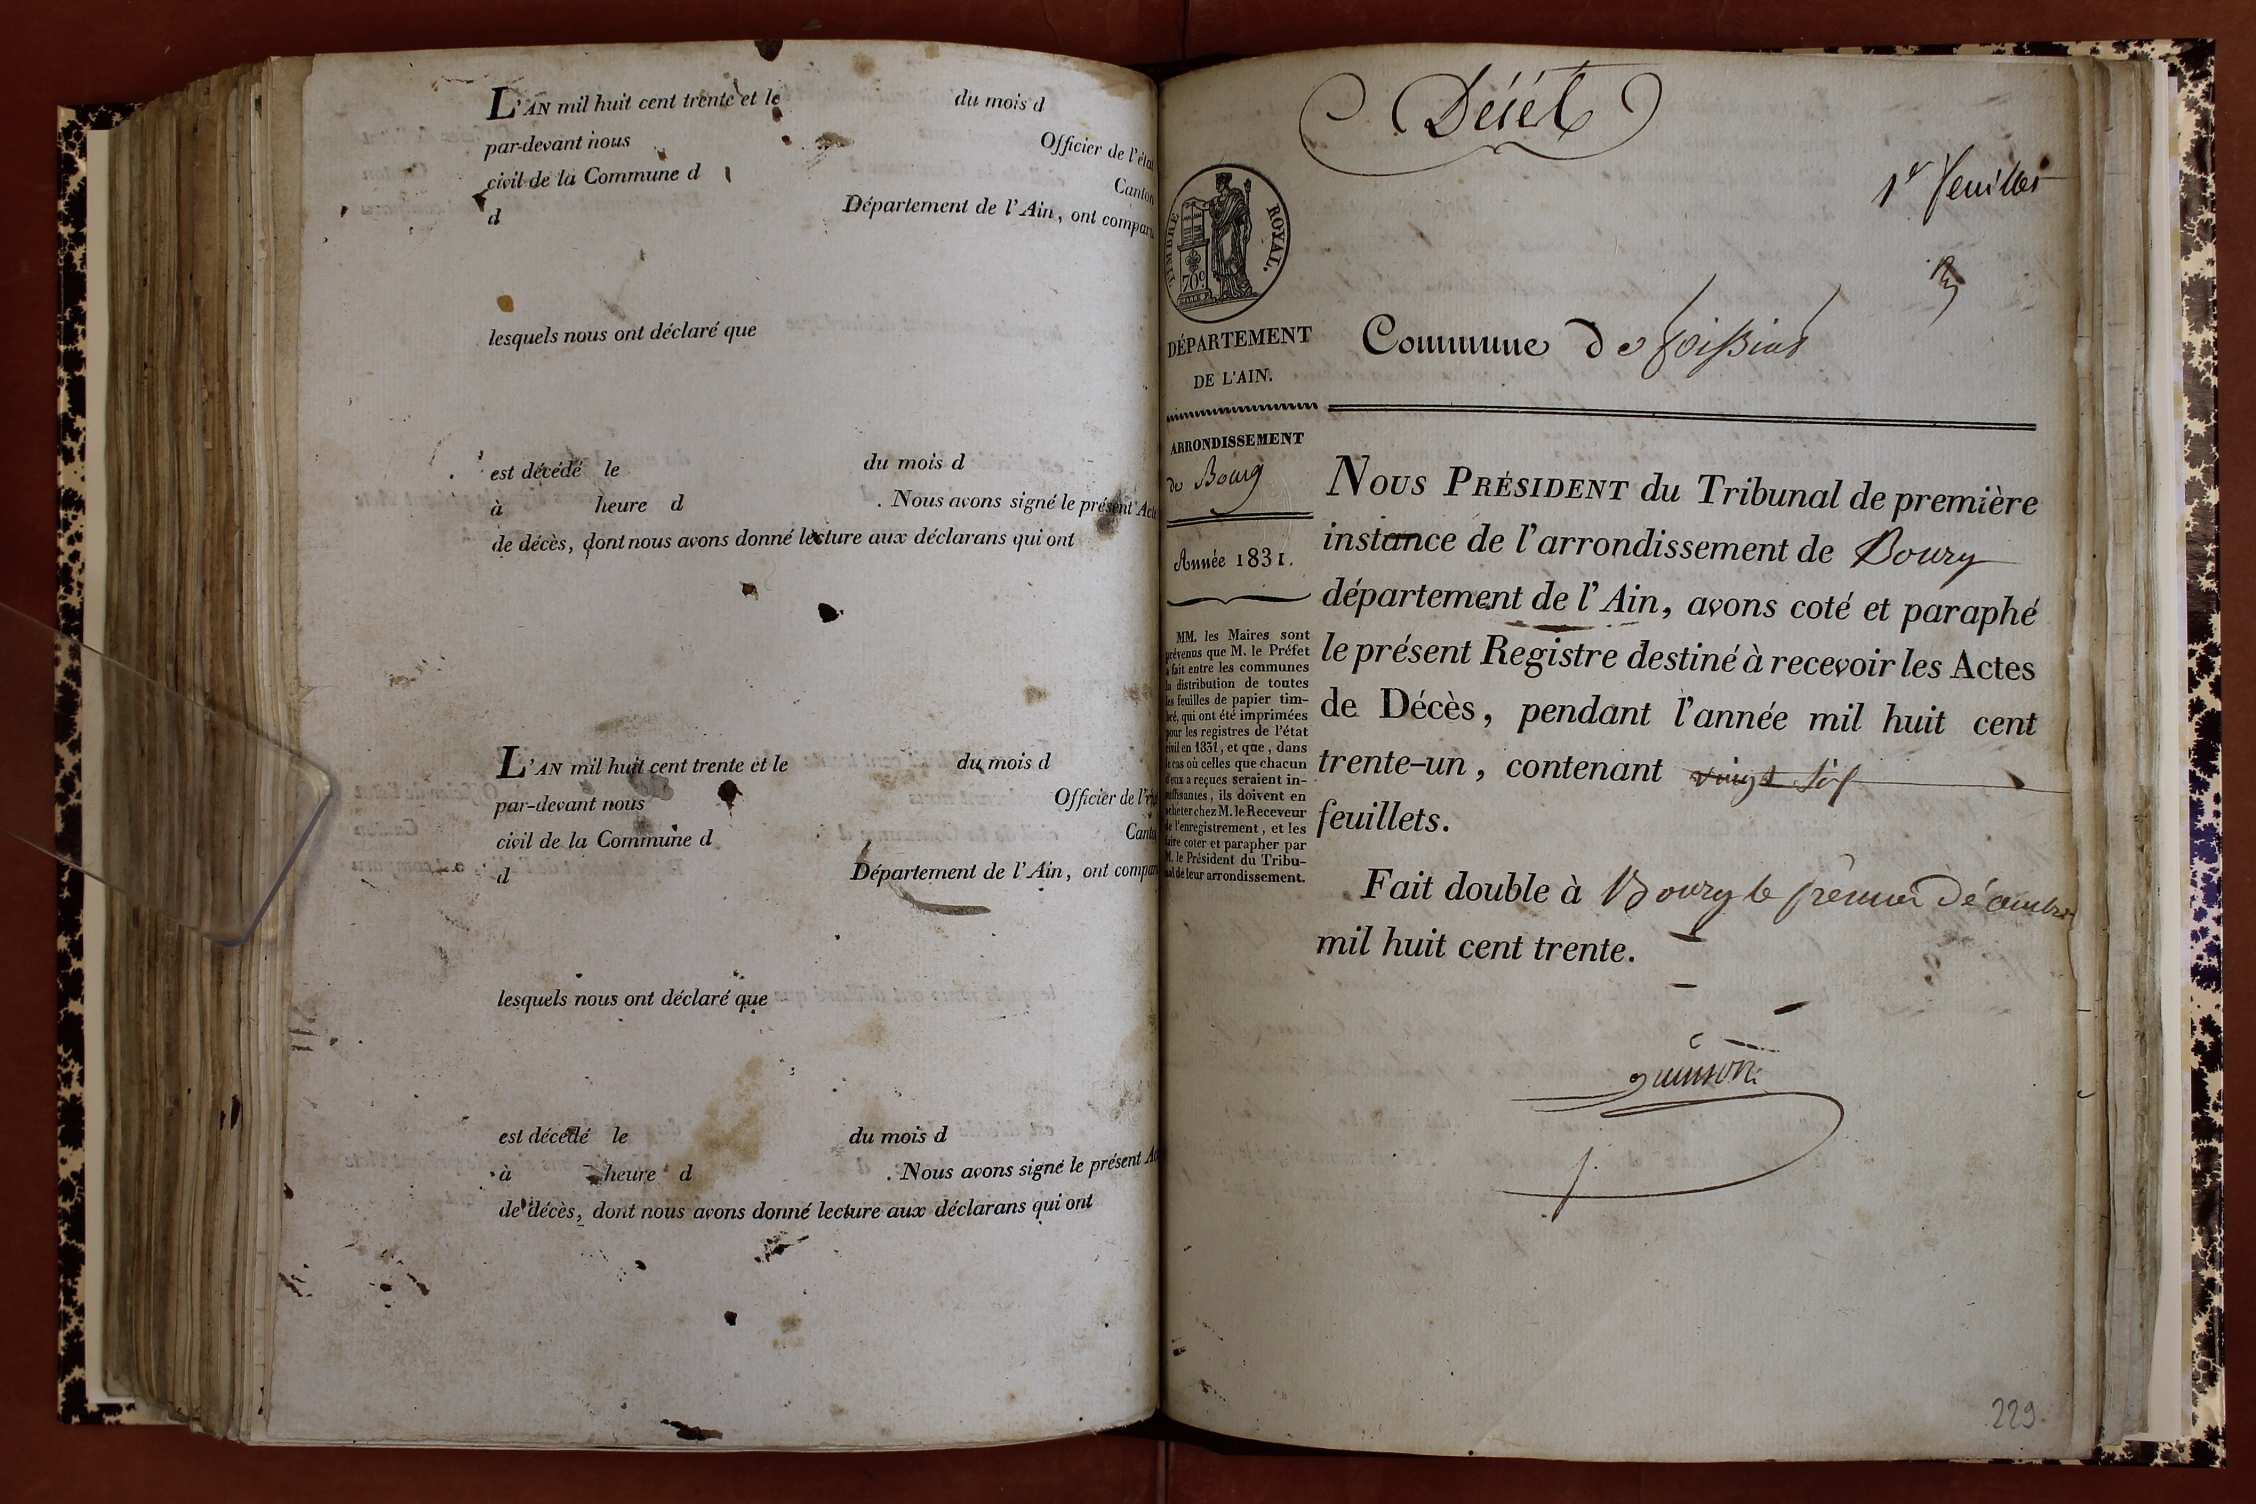 L'AN mil huit cent trente et le du mois d
par-devant nous Officier de l'état
civil de la Commune d Canton
d Département de l'Ain, ont comparu
lesquels nous ont déclaré que
est décédé le du mois d
à heure d . Nous avons signé le présent Acte
de décès, dont nous avons donné lecture aux déclarans qui ont
L'AN mil huit cent trente et le du mois d
par-devant nous Officier de l'ét
civil de la Commune d Canto
d Département de l'Ain, ont compar
lesquels nous ont déclaré que
est décédé le du mois d
à heure d . Nous avons signé le présent Ac
de décès, dont nous avons donné lecture aux déclarans qui ont
1er feuillet
TIMBRE ROYAL.
70c
DÉPARTEMENT
DE L'AIN.
Commune de
ARRONDISSEMENT
de Bourg
Année 1831.
MM. les Maires sont
prévenus que M. le Préfet
a fait entre les communes
la distribution de toutes
les feuilles de papier tim-
bré, qui ont été imprimées
pour les registres de l'état
civil en 1831, et que, dans
le cas où celles que chacun
d'eux a reçues seraient in-
suffisantes, ils doivent en
acheter chez M. le Receveur
de l'enregistrement, et les
faire coter et parapher par
M. le Président du Tribu-
nal de leur arrondissement.
NOUS PRÉSIDENT du Tribunal de première
instance de l'arrondissement de Bourg
département de l'Ain, avons coté et paraphé
le présent Registre destiné à recevoir les Actes
de Décès, pendant l'année mil huit cent
trente-un, contenant vingt six
feuillets.
Fait double à Bourg le premier Décembre
mil huit cent trente.
229.